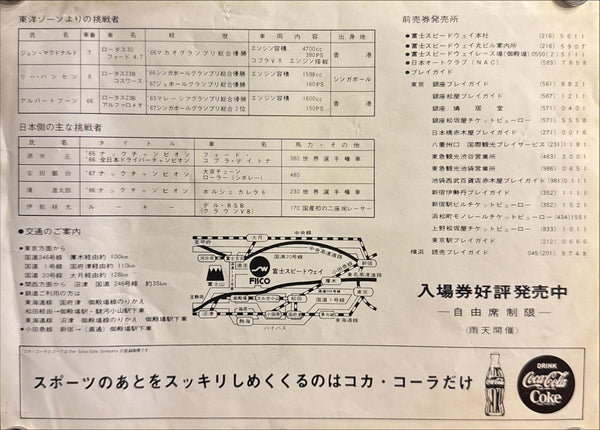 東洋ゾーンよりの挑戦者
氏名 No. 車名 経歴 エンジン 出身地
ジョン・マクドナルド 7 ロータス30 フォード4.7 '66マカオグランプリ総合優勝 エンジン容積 4700cc 380PS コブラV8 エンジン搭載 香港
リー・ハンセン 8 ロータス23B コスワース '66シンガポールグランプリ総合優勝 '67ジョホールグランプリ総合優勝 エンジン容積 1598cc 160PS シンガポール
アルバートプーン 66 ロータス23B アルファロメオ '63マレーシアグランプリ総合優勝 '67シンガポールグランプリ総合2位 エンジン容積 1600cc 150PS 香港
日本側の主な挑戦者
氏名 タイトル 車名 馬力・その他
酒井正 '65ナックチャンピオン '66全日本ドライバーチャンピオン フォード・コブラ・デイトナ 380 世界選手権車
安田銀治 '67ナックチャンピオン 大京チェーンローラー(シボレー) 480
滝進太郎 '66ナックチャンピオン ポルシェカレラ6 230 世界選手権車
伊能祥光 ルーキー デル・RSB (クラウンV8) 170 国産初の二座席レーサー
●交通のご案内
●東京方面から
国道246号線 厚木経由 約100km
国道1号線 国府津経由 約110km
国道20号線 大月経由 約128km
●関西方面から 沼津 国道246号線 約35km
●鉄道ご利用の方は
東海道線 国府津 御殿場線のりかえ
松田経由→御殿場・駿河小山駅下車
東海道線 沼津 御殿場線のりかえ 御殿場駅下車
●小田急線 新宿→(直通)御殿場駅下車
中央線
国道20号線
富士山
FISCO
富士スピードウェイ
新宿
東京
国道1号線
東海道線
バイパス
前売券発売所
●富士スピードウェイ本社 (216) 5611
●富士スピードウェイ丸ビル案内所 (216) 5907
●富士スピードウェイレース場(御殿場) 0550(2) 3111
●日本オートクラブ(NAC) (583) 7858
●プレイガイド
東京 銀座プレイガイド (561) 8821
銀座松屋プレイガイド (567) 1211
銀座鳩居堂 (571) 0401
銀座松坂屋チケットビューロー (571) 5558
日本橋木屋プレイガイド (271) 0016
八重洲口 国際観光プレイサービス (231) 1181
東急観光渋谷営業所 (463) 3001
東急観光池袋営業所 (986) 0651
池袋西武百貨店赤木屋プレイガイド (981) 0111
新宿伊勢丹プレイガイド (352) 1111
新宿駅ビルチケットビューロー (352) 5121
浜松町モノレールチケットビューロー (434) 1551
上野松坂屋チケットビューロー (831) 1331
東京駅プレイガイド (212) 0666
横浜 読売プレイガイド 045(201) 9748
入場券好評発売中
―自由席制限―
〈雨天開催〉
コカ・コーラとコークは The Coca-Cola Company の登録商標です
スポーツのあとをスッキリしめくくるのはコカ・コーラだけ
Coca-Cola
DRINK
Coca-Cola
Coke